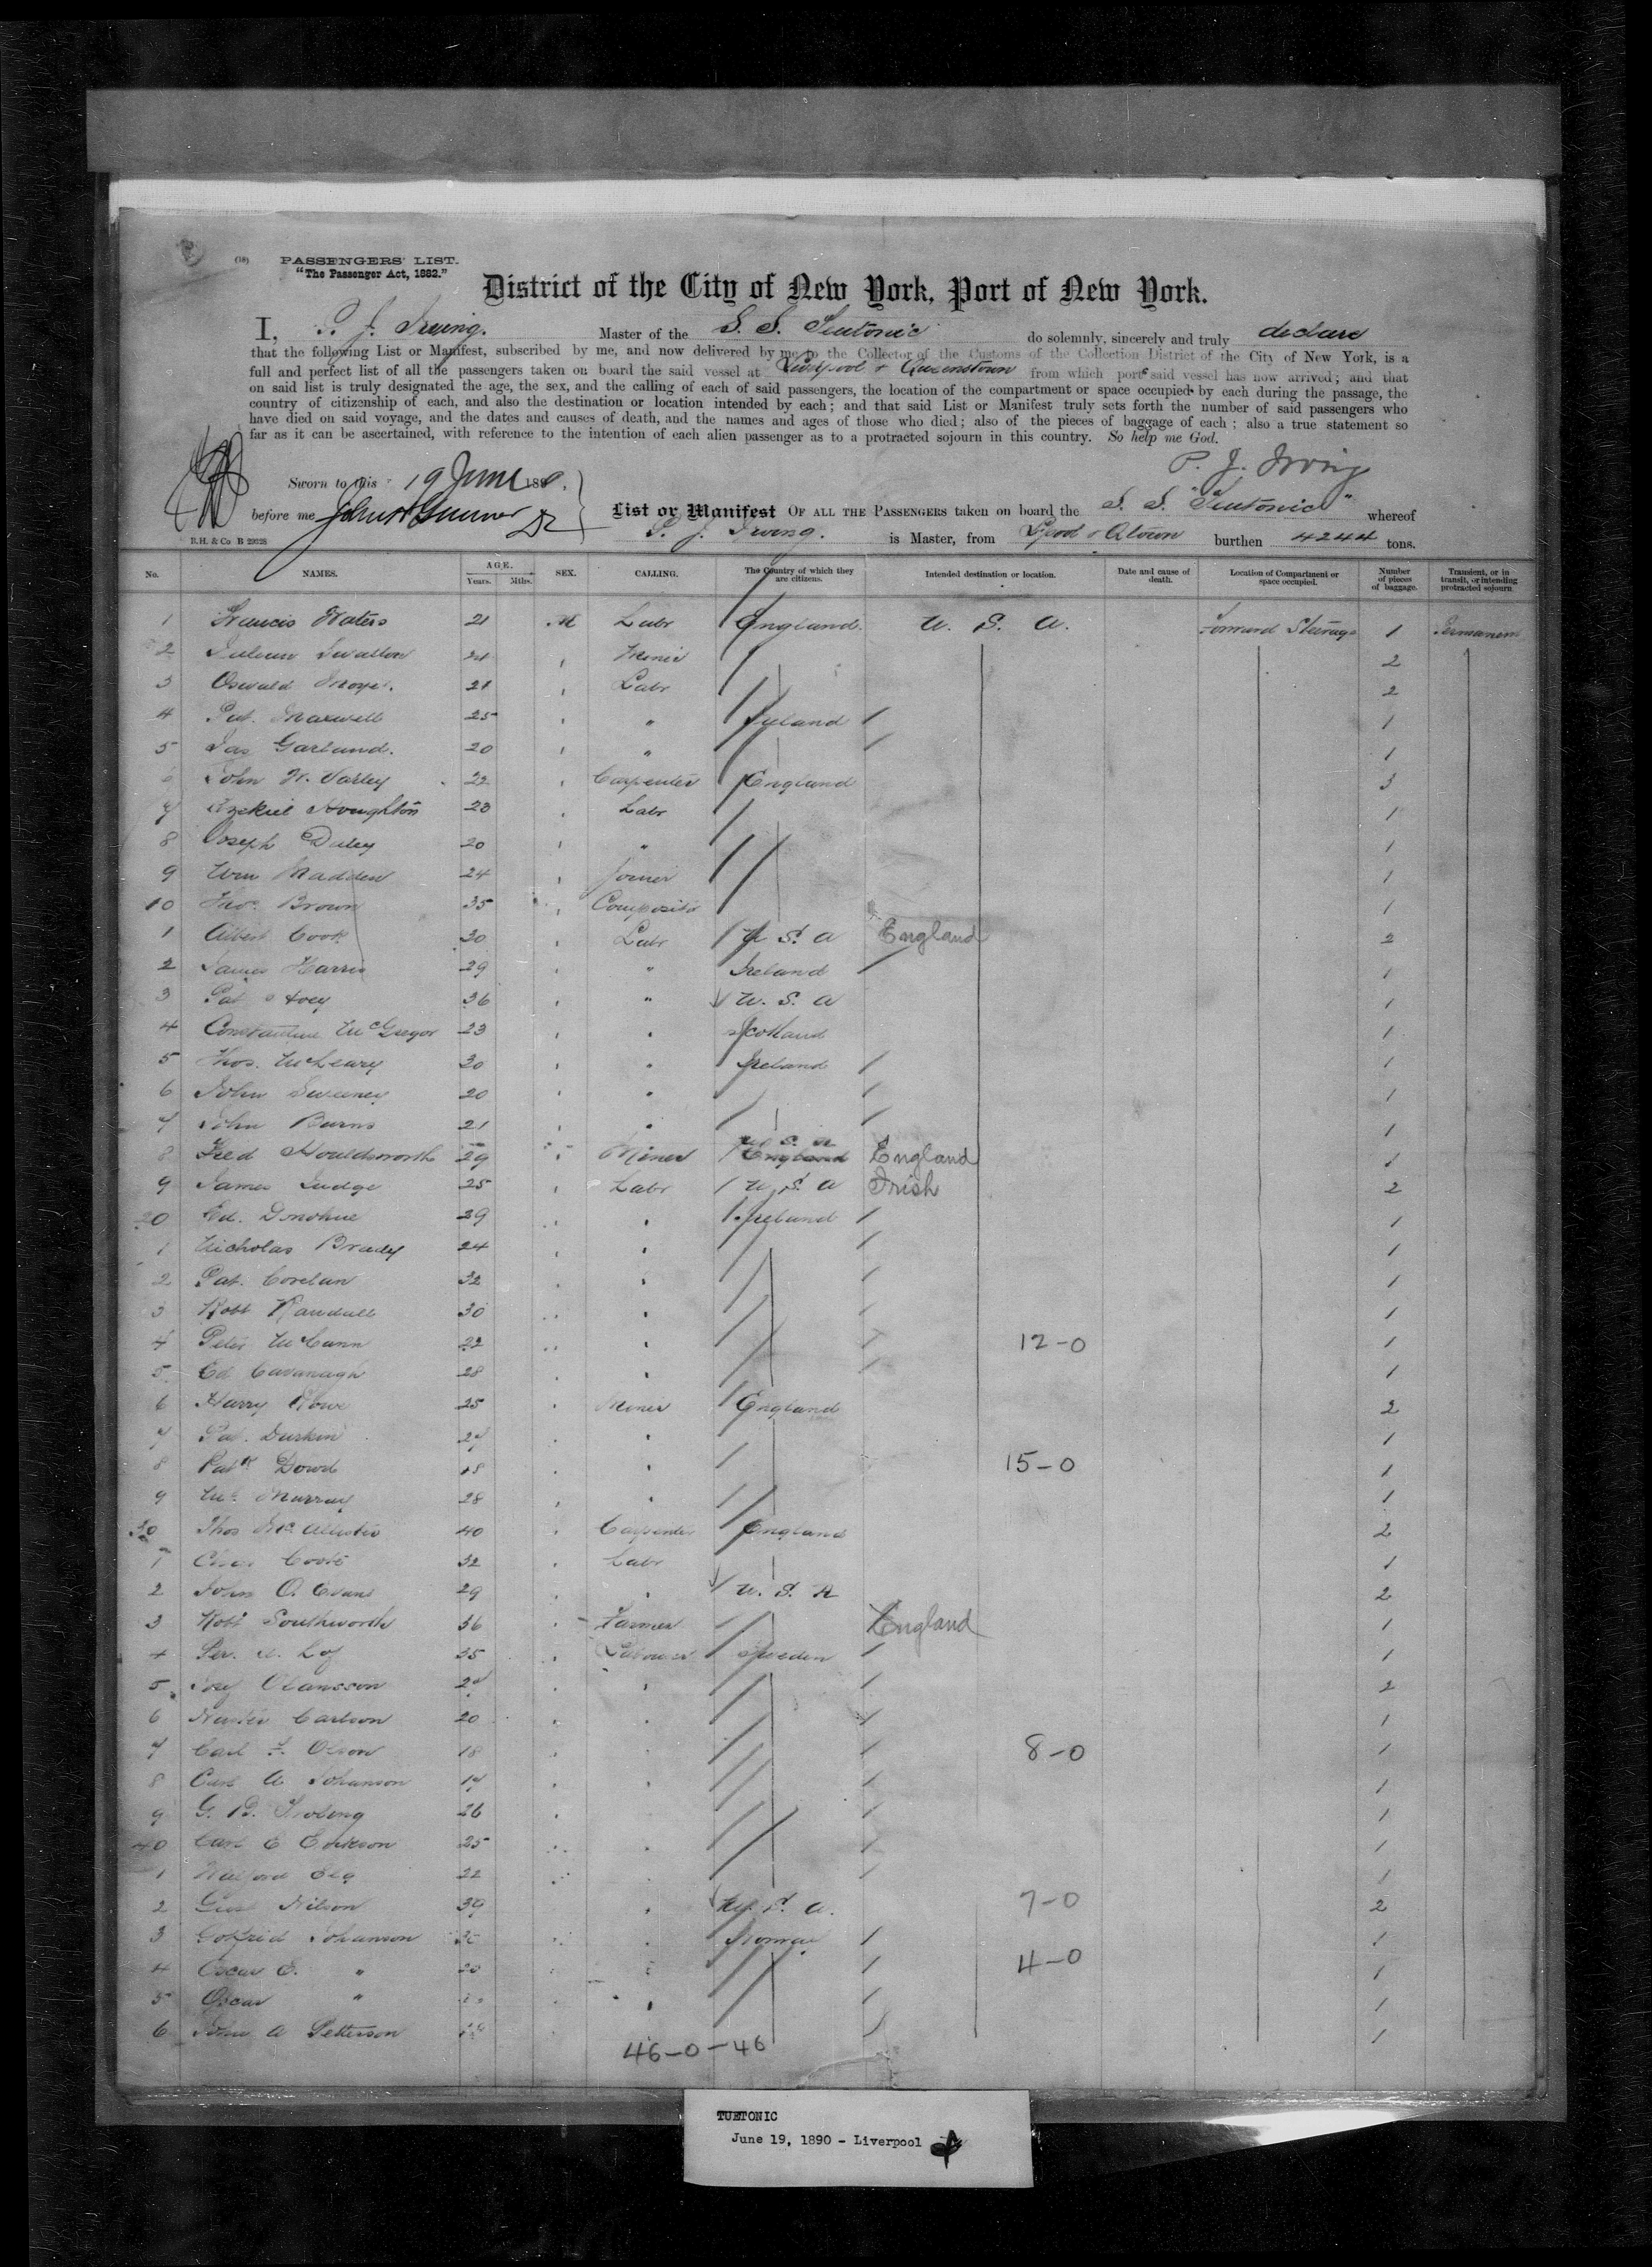 (18) PASSENGERS' LIST.
"The Passenger Act, 1882."
District of the City of New York, Port of New York.
I, P. J. Irving. Master of the S. S. Teutonic do solemnly, sincerely and truly declare
that the following List or Manifest, subscribed by me, and now delivered by me to the Collector of the Customs of the Collection District of the City of New York, is a
full and perfect list of all the passengers taken on board the said vessel at Liverpool & Queenstown from which port said vessel has now arrived; and that
on said list is truly designated the age, the sex, and the calling of each of said passengers, the location of the compartment or space occupied by each during the passage, the
country of citizenship of each, and also the destination or location intended by each; and that said List or Manifest truly sets forth the number of said passengers who
have died on said voyage, and the dates and causes of death, and the names and ages of those who died; also of the pieces of baggage of each; also a true statement so
far as it can be ascertained, with reference to the intention of each alien passenger as to a protracted sojourn in this country. So help me God.
P. J. Irving
Sworn to this 19 June 188
before me
List or Manifest OF ALL THE PASSENGERS taken on board the S. S. "Teutonic" whereof
P. J. Irving. is Master, from Lpool & Qtown burthen 4244 tons.
B.H. & Co B 29028
No. NAMES. AGE. Years. Mths. SEX. CALLING. The Country of which they are citizens. Intended destination or location. Date and cause of death. Location of Compartment or space occupied. Number of pieces of baggage. Transient, or in transit, or intending protracted sojourn
1 Francis Waters 21 M Labr England. U. S. A. Forward Steerage 1 Permanent
2 21 Miner 2
3 Oswald 21 Labr 2
4 Pat. Maxwell 25 " Ireland 1
5 Jas Garland. 20 " 1
6 John W. Varley 22 Carpenter England 3
7 Ezekiel Houghton 23 Labr 1
8 Joseph Daley 20 " 1
9 Wm Madden 24 Joiner 1
10 Thos. Brown 35 Compositor 1
1 Albert Cook 30 Labr U S A England 2
2 James Harris 29 " Ireland 1
3 Pat Hoey 36 " U. S. A 1
4 Constantine McGregor 23 Scotland 1
5 Thos. McLeary 30 Ireland 1
6 John Sweeney 20 1
7 John Burns 21 1
8 Fred Houldsworth 29 Miner U S. A England England 1
9 James Judge 25 Labr U. S. A Irish 2
20 Ed. Donohue 29 Ireland 1
1 Nicholas Brady 24 1
2 Pat. 32 1
3 Robt Randall 30 1
4 Peter McCann 22 12-0 1
5 Ed Cavanagh 28 1
6 Harry Rowe 25 Miner England 2
7 Pat. Durkin 27 1
8 Patk Dowd 18 15-0 1
9 Murray 28 1
30 Thos McAllister 40 Carpenter England 2
1 32 Labr 1
2 John O. Evans 29 U. S. A 2
3 Robt Southworth 36 Farmer England 1
4 35 Labourer Sweden 1
5 2
6 Carlson 20 1
7 Carl F. Olson 18 8-0 1
8 Carl A Johanson 17 1
9 26 1
40 Carl E Erikson 25 1
1 22 1
2 Gust Nilson 39 U. S. A. 7-0 2
3 Gottfrid Johanson Norway 1
4 Oscar E. " 20 4-0 1
5 Oscar " 1
6 John A Petterson 1
46-0-46
TUETONIC
June 19, 1890 - Liverpool